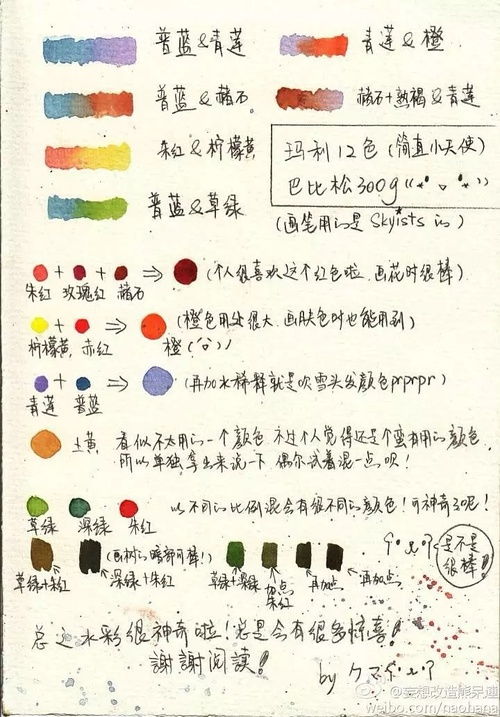 普蓝&青莲
青莲&橙
普蓝&赭石
赭石+熟褐&青莲
朱红&柠檬黄
玛利12色(简直小天使)
巴比松300g
普蓝&草绿
(画笔用的是Skyists的)
朱红 玫瑰红 赭石
(个人很喜欢这个红色啦 画花时很棒)
柠檬黄 赤红
橙
(橙色用处很大,画肤色时也能用到)
青莲 普蓝
(再加水稀释就是吹雪头发颜色prprpr)
土黄
看似不太用的一个颜色 不过个人觉得还是个蛮有用的颜色
所以单独拿出来说一下 偶尔试着混一点呗!
草绿 深绿 朱红
以不同的比例混合有很不同的颜色!可神奇了呢!
草绿+朱红
(画树的暗部可棒!)
深绿+朱红
草绿+深绿
加点朱红
再加点
再加点
是不是很棒?
总之水彩很神奇啦!总是会有很多惊喜!
謝謝阅讀!
by クマ
@妄想改造能呆迪
weibo.com/naohana